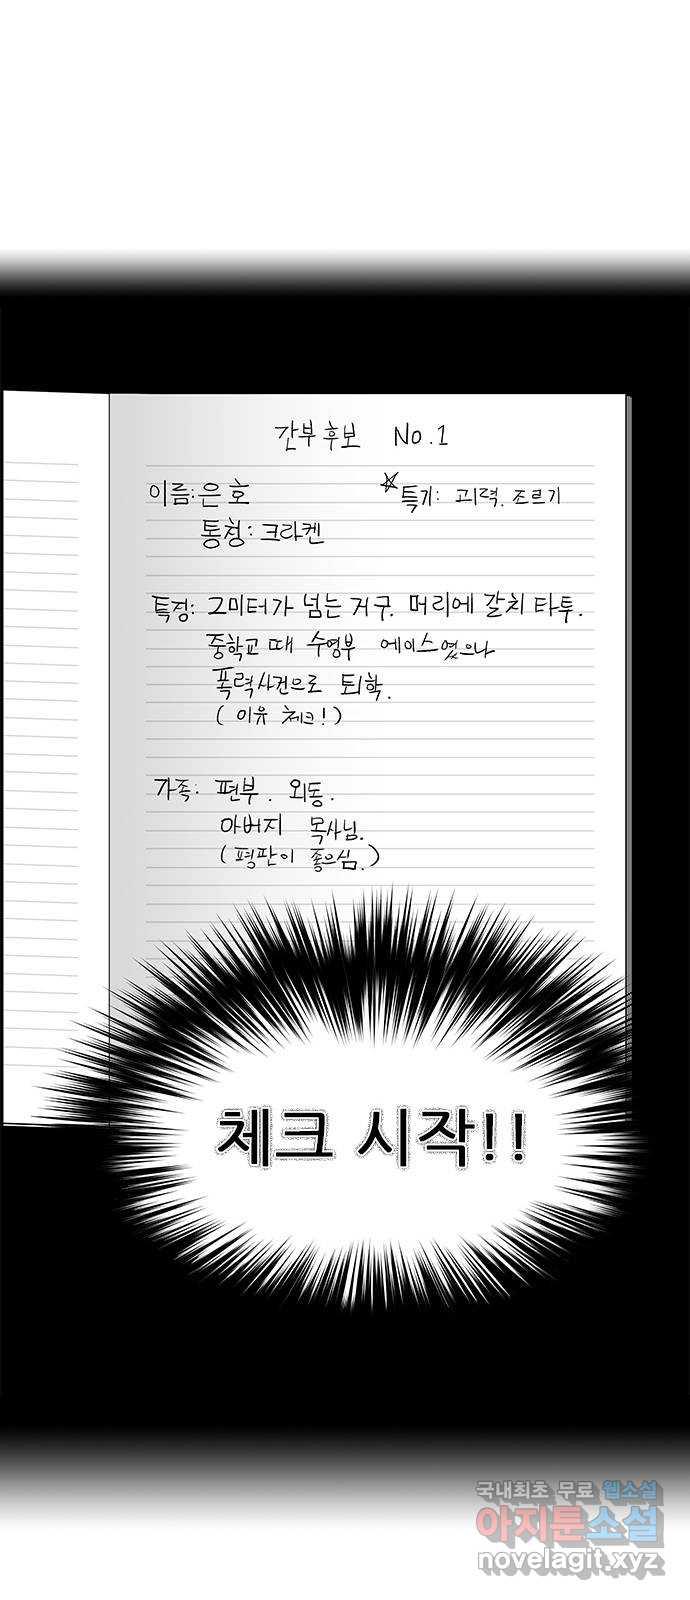 간부후보 No.1
이름: 은호 ☆특기: 괴력. 조르기
통칭: 크라켄
특징: 2미터가 넘는 거구. 머리에 갈치 타투.
중학교 때 수영부 에이스였으나
폭력사건으로 퇴학.
(이유 체크!)
가족: 편부. 외동.
아버지 목사님.
(평판이 좋으심.)
체크 시작!!
국내최초 무료 웹소설
아지툰소설
novelagit.xyz